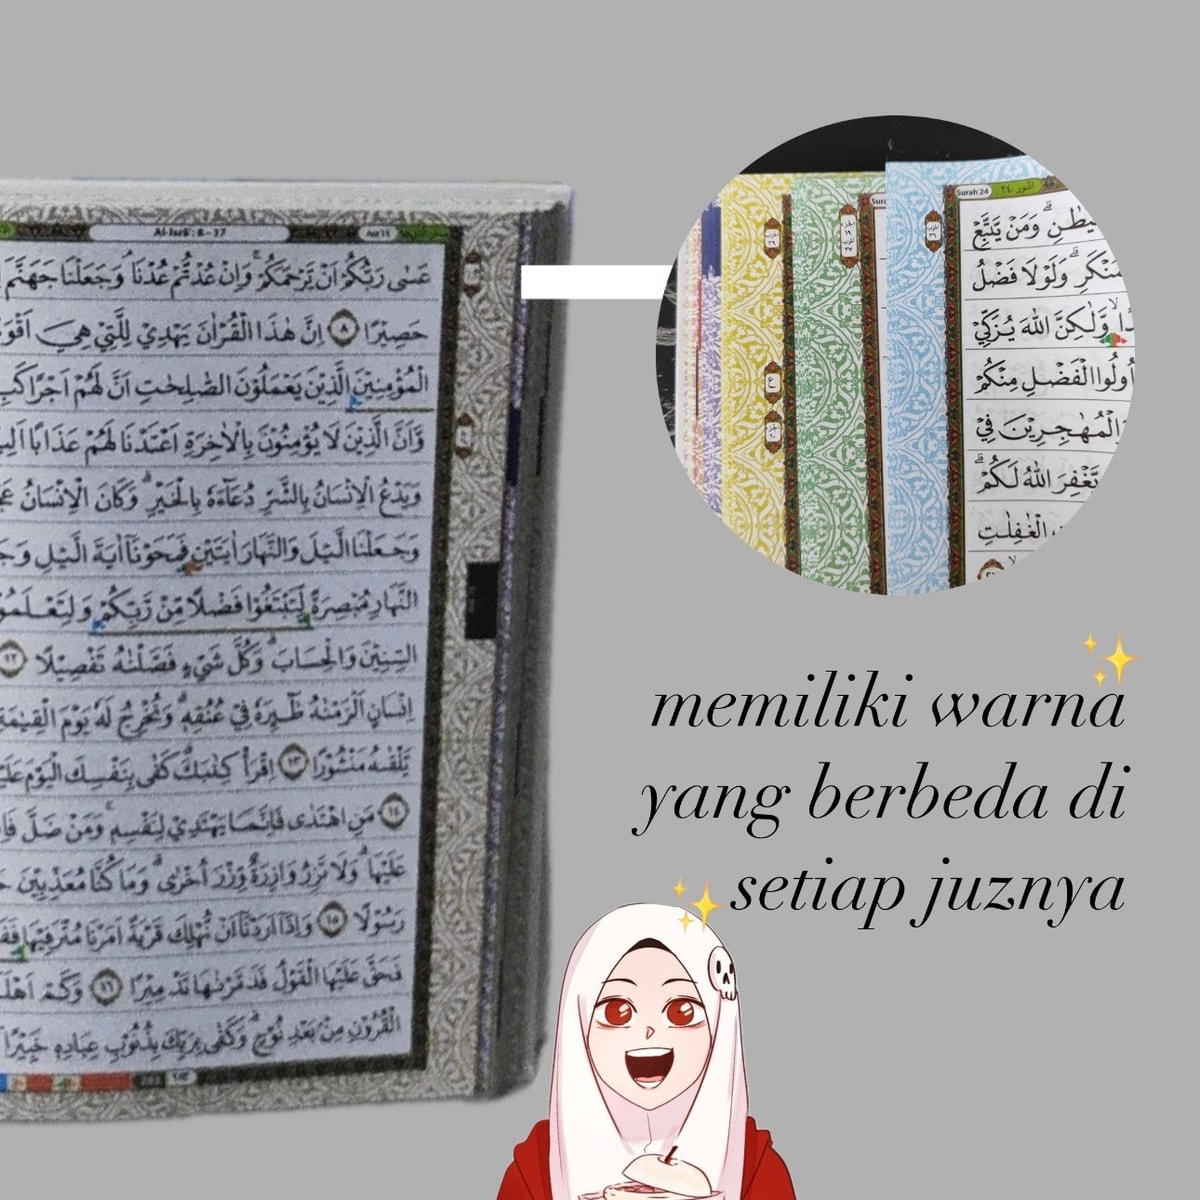 Al-Isrā': 8 - 17
Juz 15
عَسٰى رَبُّكُمْ اَنْ يَّرْحَمَكُمْۚ وَاِنْ عُدْتُّمْ عُدْنَاۘ وَجَعَلْنَا جَهَنَّمَ
حَصِيْرًا ٨ اِنَّ هٰذَا الْقُرْاٰنَ يَهْدِيْ لِلَّتِيْ هِيَ
الْمُؤْمِنِيْنَ الَّذِيْنَ يَعْمَلُوْنَ الصّٰلِحٰتِ اَنَّ لَهُمْ اَجْرًا
وَّاَنَّ الَّذِيْنَ لَا يُؤْمِنُوْنَ بِالْاٰخِرَةِ اَعْتَدْنَا لَهُمْ عَذَابًا
وَيَدْعُ الْاِنْسَانُ بِالشَّرِّ دُعَاۤءَهٗ بِالْخَيْرِۗ وَكَانَ الْاِنْسَانُ
وَجَعَلْنَا الَّيْلَ وَالنَّهَارَ اٰيَتَيْنِ فَمَحَوْنَآ اٰيَةَ الَّيْلِ
النَّهَارِ مُبْصِرَةً لِّتَبْتَغُوْا فَضْلًا مِّنْ رَّبِّكُمْ
السِّنِيْنَ وَالْحِسَابَۗ وَكُلَّ شَيْءٍ فَصَّلْنٰهُ تَفْصِيْلًا ١٢
اِنْسَانٍ اَلْزَمْنٰهُ طٰۤىِٕرَهٗ فِيْ عُنُقِهٖۗ وَنُخْرِجُ لَهٗ يَوْمَ الْقِيٰمَةِ
يَّلْقٰىهُ مَنْشُوْرًا ١٣ اِقْرَأْ كِتٰبَكَۗ كَفٰى بِنَفْسِكَ الْيَوْمَ
١٤ مَنِ اهْتَدٰى فَاِنَّمَا يَهْتَدِيْ لِنَفْسِهٖۚ وَمَنْ ضَلَّ
عَلَيْهَاۗ وَلَا تَزِرُ وَازِرَةٌ وِّزْرَ اُخْرٰىۗ وَمَا كُنَّا مُعَذِّبِيْنَ
رَسُوْلًا ١٥ وَاِذَآ اَرَدْنَآ اَنْ نُّهْلِكَ قَرْيَةً اَمَرْنَا مُتْرَفِيْهَا
فَحَقَّ عَلَيْهَا الْقَوْلُ فَدَمَّرْنٰهَا تَدْمِيْرًا ١٦ وَكَمْ
الْقُرُوْنِ مِنْۢ بَعْدِ نُوْحٍۗ وَكَفٰى بِرَبِّكَ بِذُنُوْبِ عِبَادِهٖ خَبِيْرًا
Surah 24
النور ٢٤
وَمَنْ يَّتَّبِعْ
وَلَوْلَا فَضْلُ
وَّلٰكِنَّ اللّٰهَ يُزَكِّيْ
اُولُوا الْفَضْلِ مِنْكُمْ
وَالْمُهٰجِرِيْنَ فِيْ
يَّغْفِرَ اللّٰهُ لَكُمْۗ
الْغٰفِلٰتِ
memiliki warna
yang berbeda di
setiap juznya